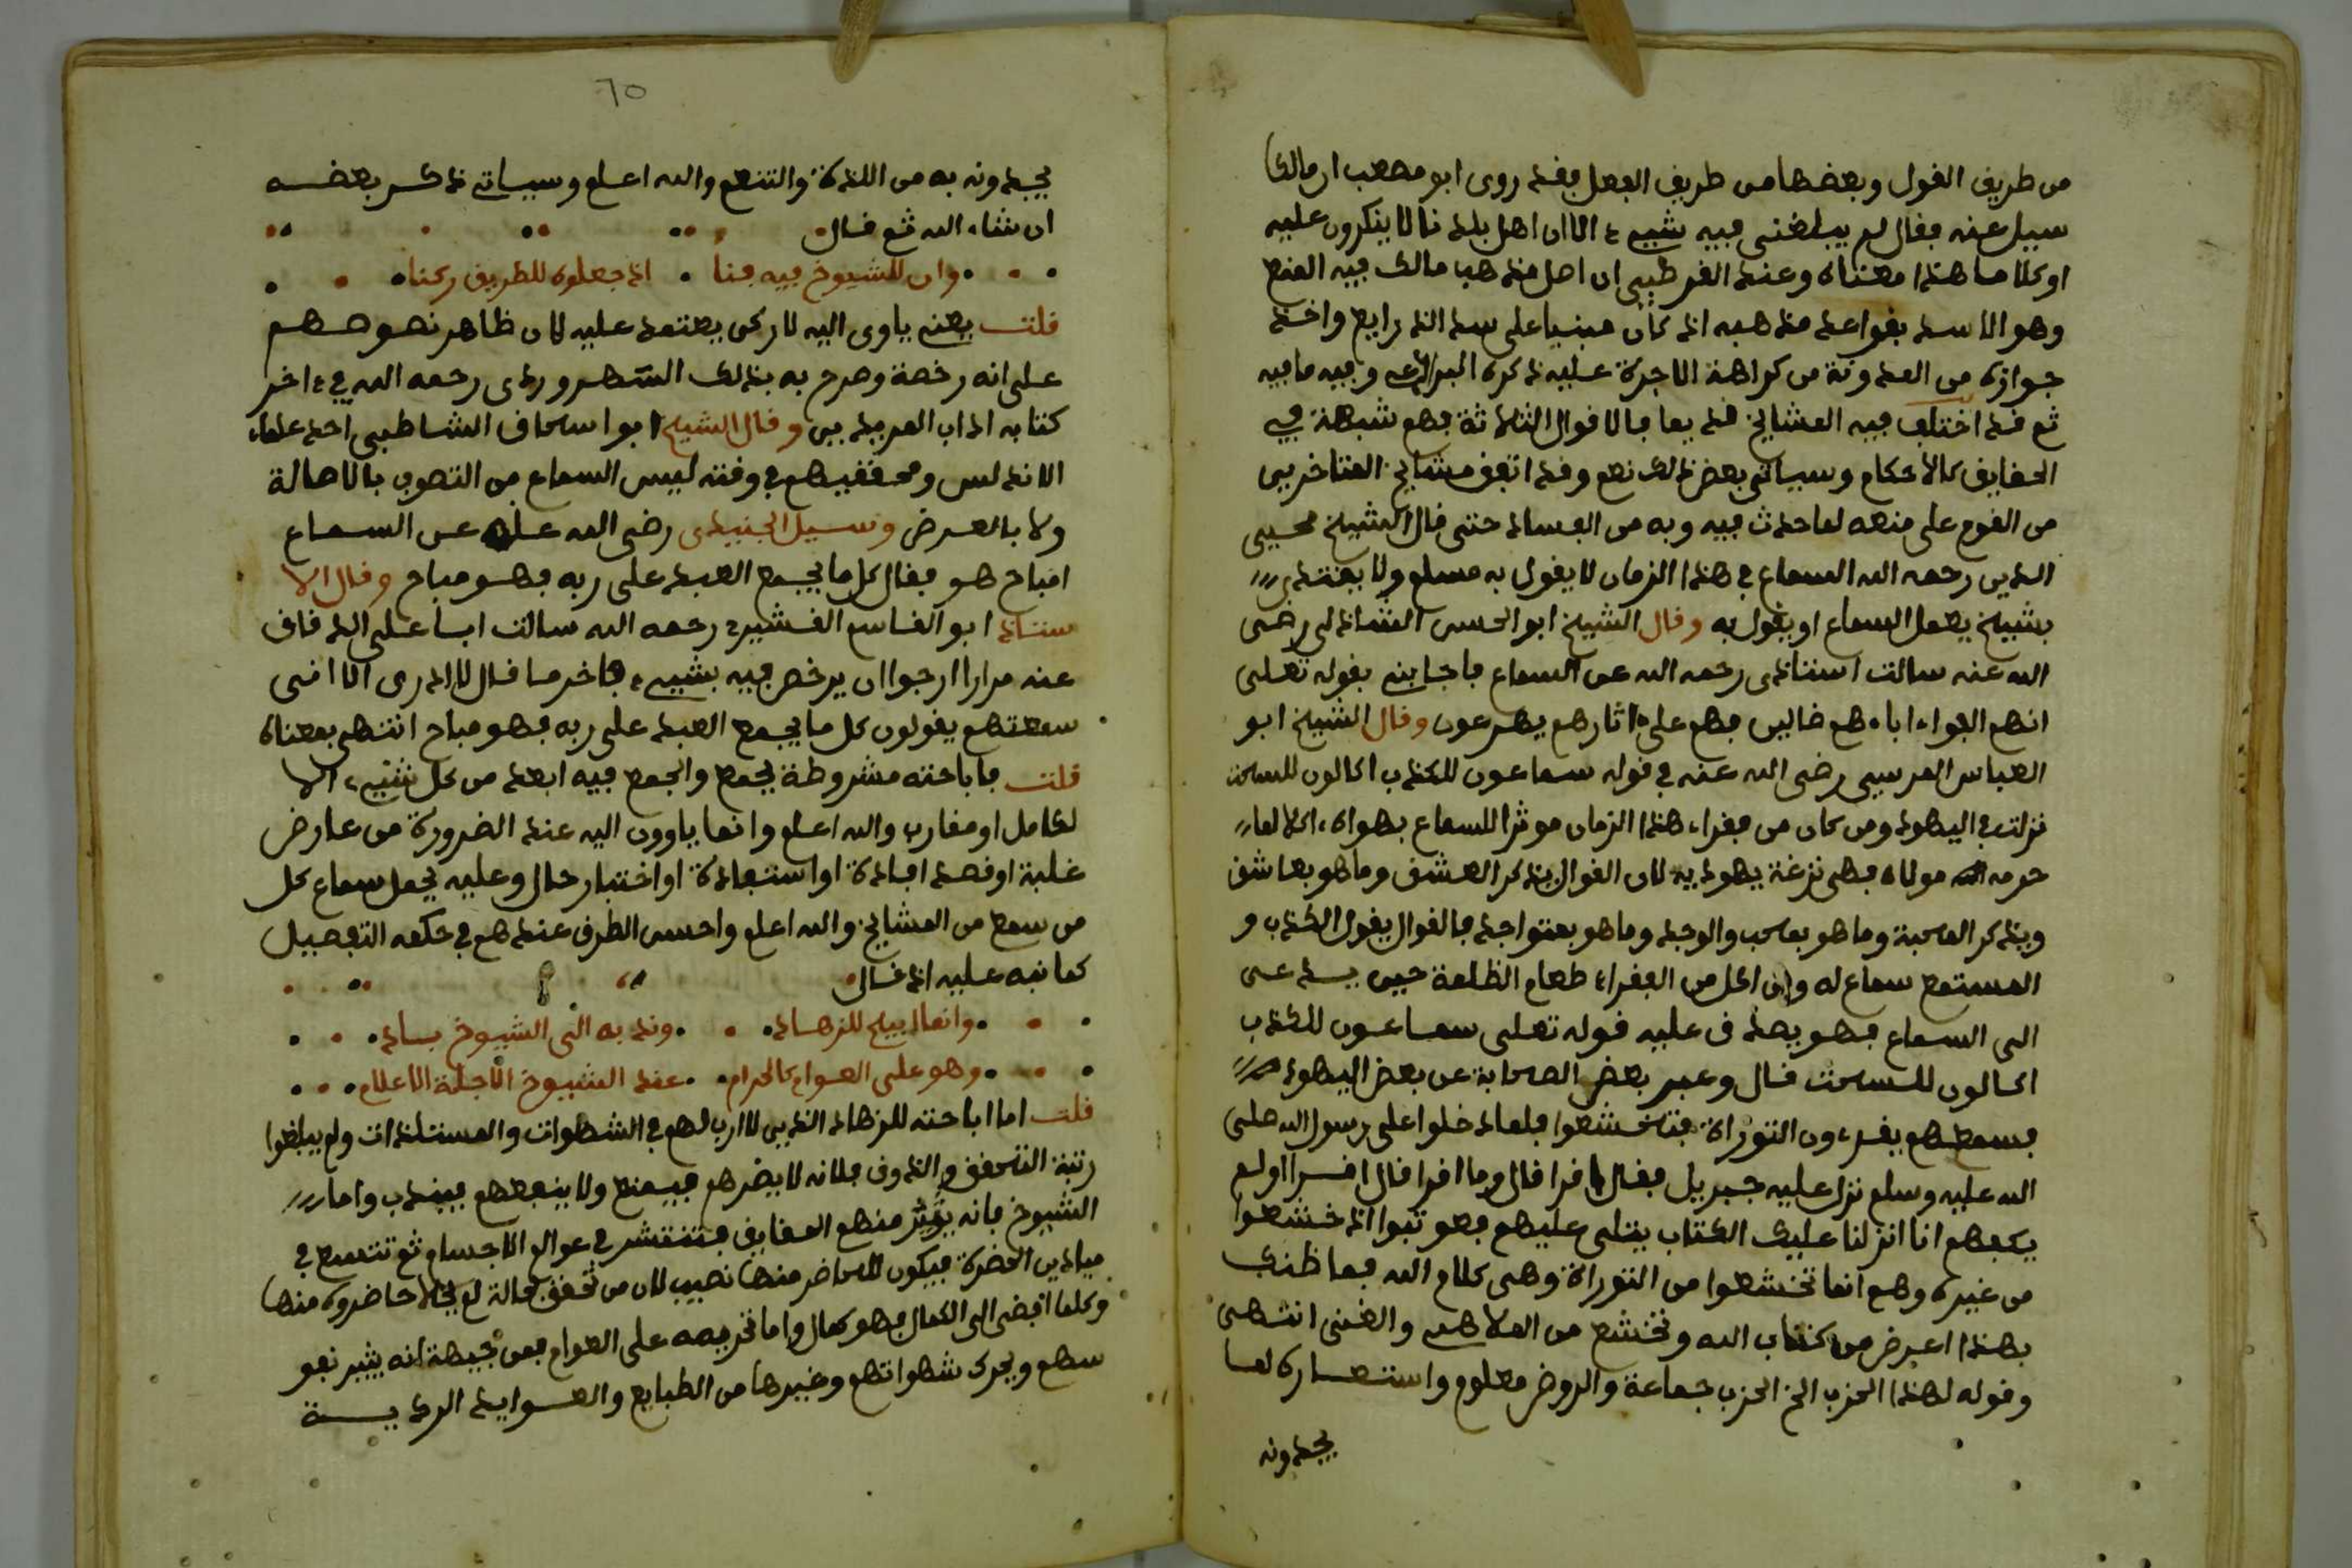 من طريق القول وبعضها من طريق الفعل فقد روى ابو مصعب ان مالكا
سيل عنه فقال لم يبلغني فيه شيء الا ان اهل بلدنا لا ينكرون عليه
او كلاما هذا معناه وعند القرطبي ان اصل مذهب مالك فيه المنع
وهو الاسد بقواعد مذهبه اذ كان مبنيا على سد الذرايع واخذ
جوازه من المدونة من كراهة الاجرة عليه ذكره وفيه ما فيه
ثم قد اختلف فيه المشايخ قديما فالاقوال الثلاثة فهم شبهة في
الحقايق كالاحكام وسياتي بعض ذلك نعم وقد اتفق مشايخ المتاخرين
من القوم على منعه لما حدث فيه وبه من الفساد حتى قال الشيخ محيي
الدين رحمه الله السماع في هذا الزمان لا يقول به مسلم ولا يقتدى
بشيخ يعمل السماع او يقول به وقال الشيخ ابو الحسن الشاذلي رضي
الله عنه سالت استاذي رحمه الله عن السماع فاجابني بقوله تعلى
انهم الفوا اباءهم ضالين فهم على اثارهم يهرعون وقال الشيخ ابو
العباس المرسي رضي الله عنه في قوله سماعون للكذب اكالون للسحت
نزلت في اليهود ومن كان من فقراء هذا الزمان موثرا للسماع بهواه، اكلا لما
حرمه مولاه فهي نزغة يهودية لان القوال يذكر العشق وما هو بعاشق
ويذكر المحبة وما هو بمحب والوجد وما هو بمتواجد فالقوال يقول الكذب و
المستمع سماع له ومن اكل من الفقراء طعام الظلمة حين يدعى
الى السماع فهو يصدق عليه قوله تعلى سماعون للكذب
اكالون للسحت قال وعبر بعض الصحابة عن بعض اليهود
فسمعهم يقرءون التوراة فتخشعوا فلما دخلوا على رسول الله صلى
الله عليه وسلم نزل عليه جبريل فقال اقرا قال وما اقرا قال اقرا اولم
يكفهم انا انزلنا عليك الكتاب يتلى عليهم فعوتبوا اذ خشعوا
من غيره وهم انما تخشعوا من التوراة وهي كلام الله فما ظنك
بهذا اعرض من كتاب الله وتخشع من الملاهي والغنى انتهى
وقوله لهذا الحزب الخ الحزب جماعة والروض معلوم واستعاره لما
يجدونه
٦٥
يجدونه به من اللذة والتنعم والله اعلم وسياتي ذكر بعضه
ان شاء الله ثم قال
وان للشيوخ فيه فنا اذ جعلوه للطريق ركنا
قلت يعني ياوى اليه لا ركن يعتمد عليه لان ظاهر نصوصهم
على انه رخصة وصرح به بذلك السهروردي رحمه الله في ءاخر
كتابه اداب المريدين وقال الشيخ ابو اسحاق الشاطبي احد علماء
الاندلس ومحققيهم في وقته ليس السماع من التصوف بالاصالة
ولا بالعرض وسيل الجنيد رضي الله عنه عن السماع
امباح هو فقال كل ما يجمع العبد على ربه فهو مباح وقال الا
ستاذ ابو القاسم القشيري رحمه الله سالت ابا على الدقاق
عنه مرارا ارجوا ان يرخص فيه بشيء فاخر ما قال لا ادرى الا انى
سمعتهم يقولون كل ما يجمع العبد على ربه فهو مباح انتهى بمعناه
قلت فاباحته مشروطة بجمع والجمع فيه ابعد من كل شيء، الا
لكامل او مقارب والله اعلم وانما ياوون اليه عند الضرورة من عارض
غلبة او قصد افادة او استفادة او اختبار حال وعليه يحمل سماع كل
من سمع من المشايخ والله اعلم واحسن الطرق عندهم في حكمه التفصيل
كما نبه عليه اذ قال
وانما ابيح للزهاد وندبه الى الشيوخ باد
وهو على العوام كالحرام عند الشيوخ الاجلة الاعلام
قلت اما اباحته للزهاد الذين لا ارب لهم في الشهوات والمستلذات ولم يبلغوا
رتبة التحقق والذوق فلانه لا يضرهم فيمنع ولا ينفعهم فيندب واما
الشيوخ فانه يؤثر منهم الحقايق فتنتشر في عوالم الاجسام ثم تتسع في
ميادين الحضرة فيكون للحاضر منها نصيب لان من تحقق بحالة لم يخل حاضروه منها
وكلما افضى الى الكمال فهو كمال واما تحريمه على العوام فمن جهة انه يثير نفو
سهم ويحرك شهواتهم وغيرها من الطبايع والعوايد الردية